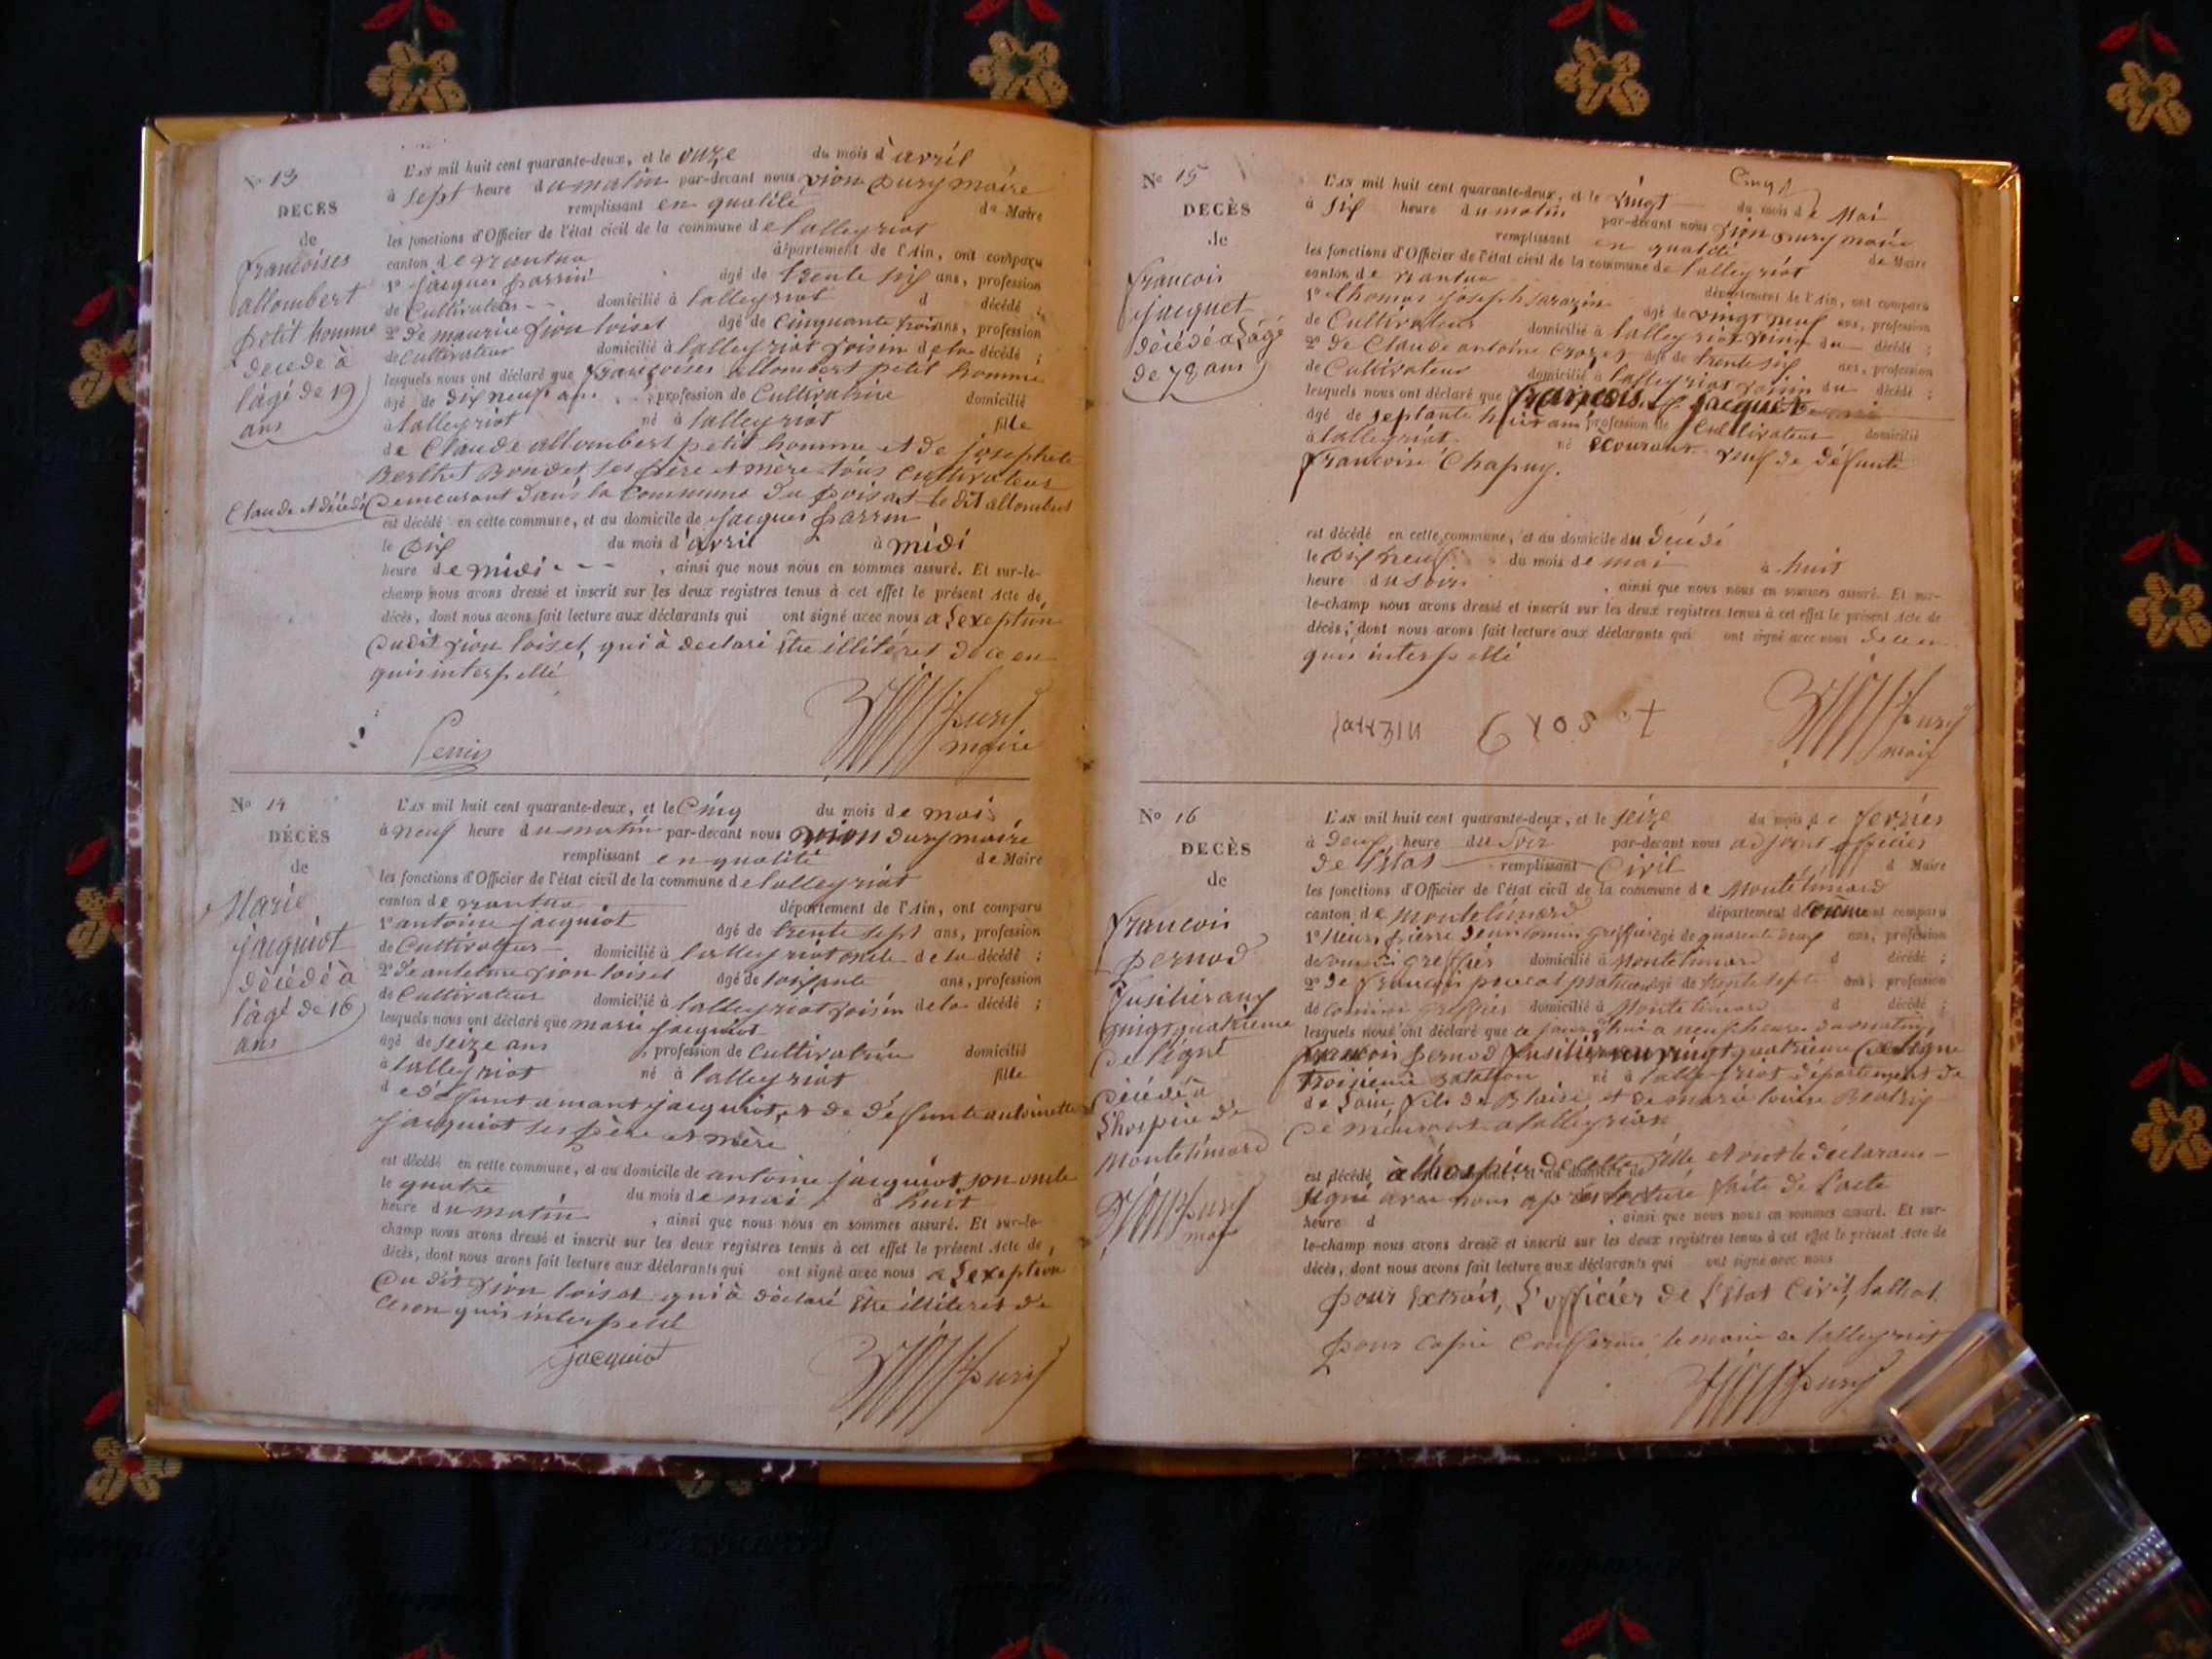 No 13
DÉCÈS
de
francoises
allombert
petit homme
décédé à
l'âgé de 19
ans
L'AN mil huit cent quarante-deux, et le onze du mois d'avril
à sept heure du matin par-devant nous vion dury maire
remplissant en qualité de Maire
les fonctions d'Officier de l'état civil de la commune de lalleyriat
canton de nantua département de l'Ain, ont comparu
1° jacques parrin âgé de trente six ans, profession
de Cultivateur domicilié à lalleyriat d décédé ;
2° de maurice vion loiset âgé de cinquante trois ans, profession
de Cultivateur domicilié à lalleyriat voisin de la décédé ;
lesquels nous ont déclaré que francoises allombert petit homme
âgé de dix neuf ans profession de Cultivatrice domicilié
à lalleyriat né à lalleyriat fille
de Claude allombert petit homme et de josephete
Berthet Bondet ses père et mère tous cultivateurs
Claude et décédé demeurant dans la commune du poizat ledit allombert
est décédé en cette commune, et au domicile de jacques parrin
le dix du mois d'avril à midi
heure de midi , ainsi que nous nous en sommes assuré. Et sur-le-
champ nous avons dressé et inscrit sur les deux registres tenus à cet effet le présent Acte de
décès, dont nous avons fait lecture aux déclarants qui ont signé avec nous a l'exeption
dudit vion loiset, qui à déclaré être illitéret de ce en
quis interpellé
Perrin
dury
maire
No 14
DÉCÈS
de
Marie
jacquiot
décédé à
l'âgé de 16
ans
L'AN mil huit cent quarante-deux, et le Cinq du mois de mai
à neuf heure du matin par-devant nous vion dury maire
remplissant en qualité de Maire
les fonctions d'Officier de l'état civil de la commune de lalleyriat
canton de nantua département de l'Ain, ont comparu
1° antoine jacquiot âgé de trente sept ans, profession
de Cultivateur domicilié à lalleyriat oncle de la décédé ;
2° de antelme vion loiset âgé de soixante ans, profession
de Cultivateur domicilié à lalleyriat voisin de la décédé ;
lesquels nous ont déclaré que marie jacquiot
âgé de seize ans , profession de cultivatrice domicilié
à lalleyriat né à lalleyriat fille
de défunt amant jacquiot, et de défunte antoinette
jacquiot ses père et mère
est décédé en cette commune, et au domicile de antoine jacquiot son oncle
le quatre du mois de mai à huit
heure du matin , ainsi que nous nous en sommes assuré. Et sur-le-
champ nous avons dressé et inscrit sur les deux registres tenus à cet effet le présent Acte de
décès, dont nous avons fait lecture aux déclarants qui ont signé avec nous a l'exeption
du dit vion loiset qui à déclaré être illiteret de
ce en quis interpellé
jacquiot
dury
No 15
DÉCÈS
de
francois
jacquet
décédé a l'âgé
de 78 ans
Cinq
L'AN mil huit cent quarante-deux, et le vingt du mois de Mai
à six heure du matin par-devant nous vion dury maire
remplissant en qualité de Maire
les fonctions d'Officier de l'état civil de la commune de lalleyriat
canton de nantua département de l'Ain, ont comparu
1° thomas joseph sarazin âgé de vingt neuf ans, profession
de Cultivateur domicilié à lalleyriat voisin du décédé ;
2° de Claude antoine crozet âgé de trente six ans, profession
de Cultivateur domicilié à lalleyriat voisin du décédé ;
lesquels nous ont déclaré que francois jacquet
âgé de septante huit ans profession de Cultivateur domicilié
à lalleyriat né veuf de défunte
francoise Chapuy.
est décédé en cette commune, et au domicile du décédé
le dix neuf du mois de mai à huit
heure du soir , ainsi que nous nous en sommes assuré. Et sur-
le-champ nous avons dressé et inscrit sur les deux registres tenus à cet effet le présent Acte de
décès, dont nous avons fait lecture aux déclarants qui ont signé avec nous de ce en
quis interpellé
dury
maire
No 16
DÉCÈS
de
francois
pernod
fusilier aux
vingt quatrieme
de ligne
décédé à
l'hospice de
Montelimard
dury
maire
L'AN mil huit cent quarante-deux, et le seize du mois de fevrier
à deux heure du soir par-devant nous adjoint officier
de l'état remplissant Civil d Maire
les fonctions d'Officier de l'état civil de la commune de Montélimard
canton de montelimard département de Drome ont comparu
âgé de quarante deux ans, profession
domicilié à Montelimard d décédé ;
2° de francois âgé de trente sept ans, profession
de commis greffier domicilié à Montelimard d décédé ;
lesquels nous ont déclaré que ce jourd'hui a neuf heures du matin,
francois pernod fusilier au vingt quatrieme de ligne
troisieme batallon né à lalleyriat département de
de l'ain, fils de Blaise et de marie louise Beatrix
demeurant a lalleyriat
est décédé à l'hospice de cette ville et ont les déclarans
signé avec nous après lecture faite de l'acte
heure d , ainsi que nous nous en sommes assuré. Et sur-
le-champ nous avons dressé et inscrit sur les deux registres tenus à cet effet le présent Acte de
décès, dont nous avons fait lecture aux déclarants qui ont signé avec nous
pour Extrait, L'officier de l'état Civil,
pour copie conforme le maire de lalleyriat
dury